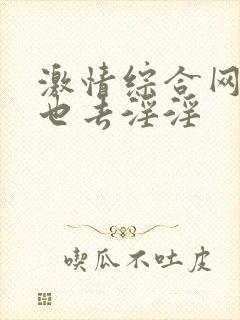 激情综合网
也去淫淫
喫瓜不吐皮